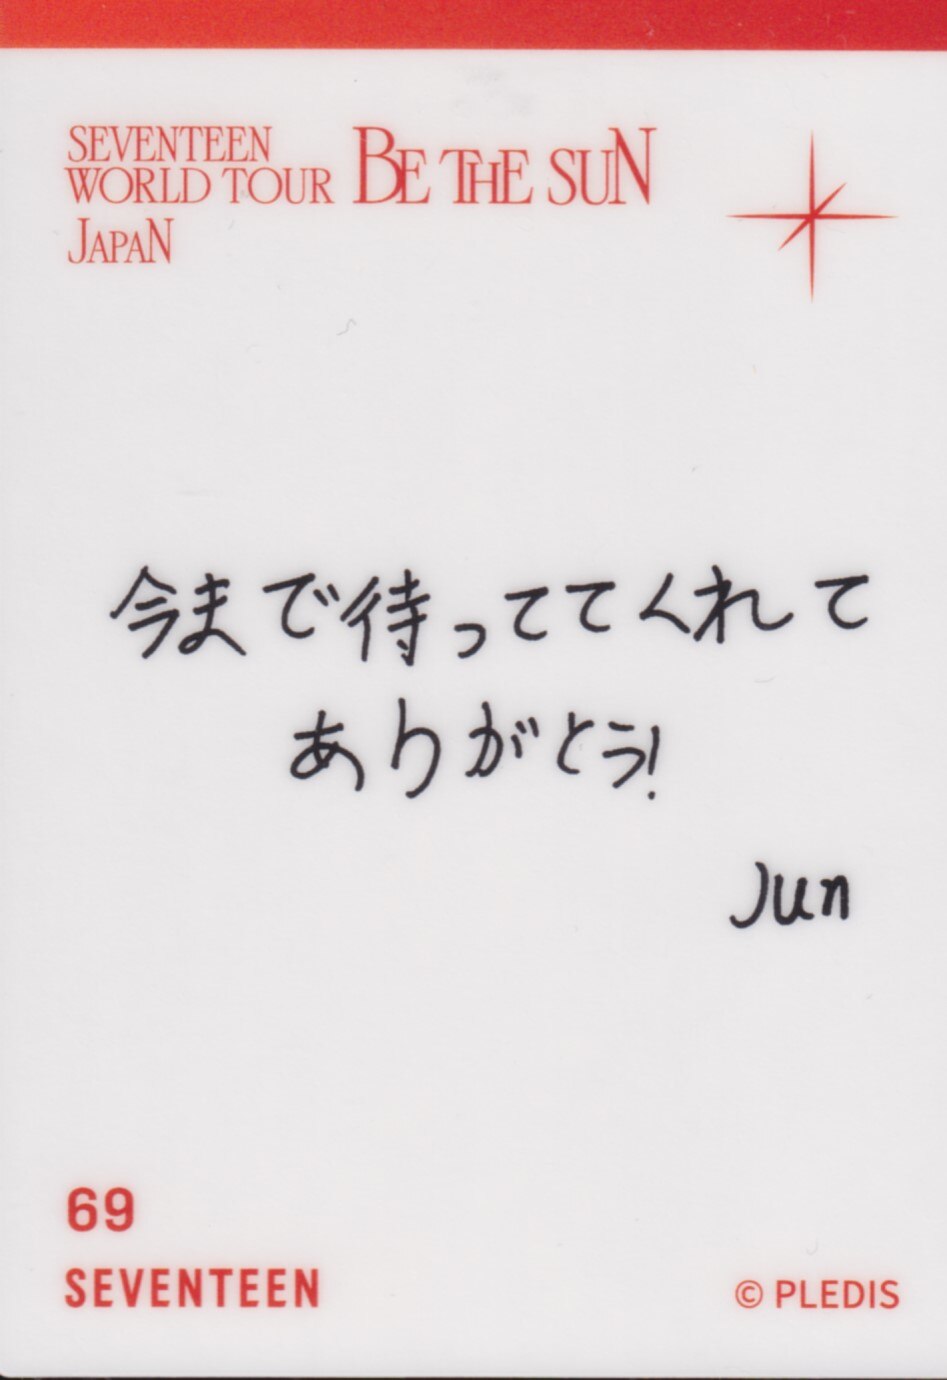 SEVENTEEN
WORLD TOUR BE THE SUN
JAPAN
今まで待っててくれて
ありがとう!
Jun
69
SEVENTEEN
© PLEDIS